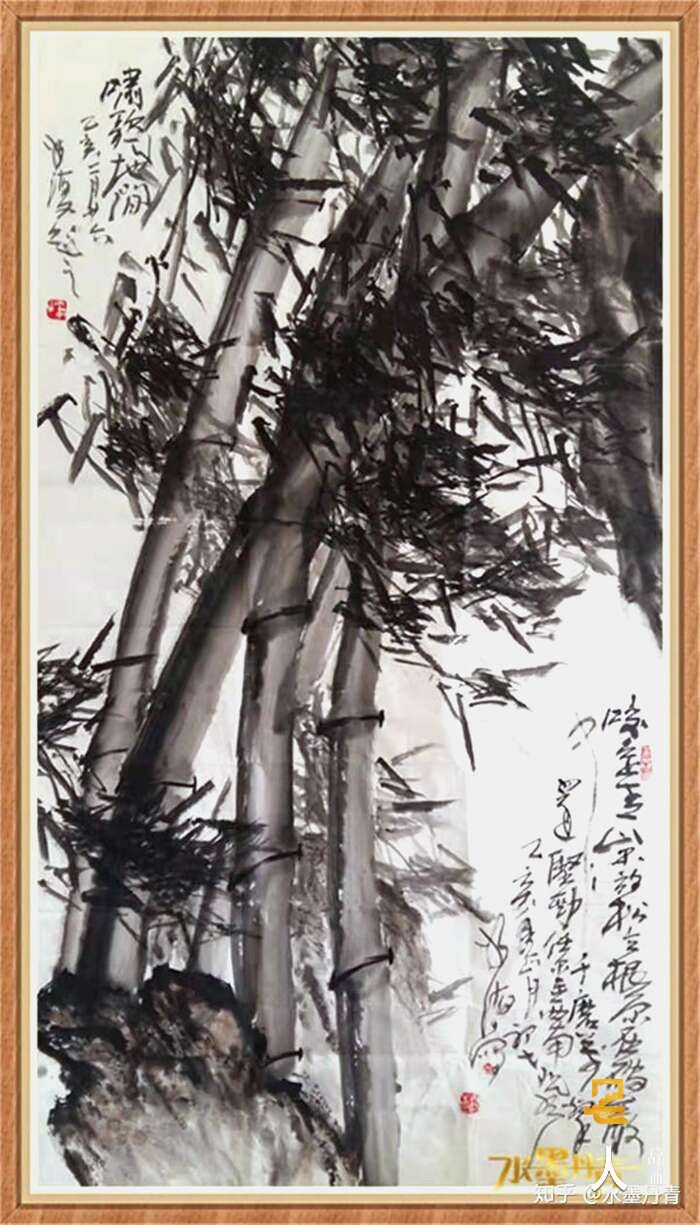 啸歌天地间
乙亥二月十六
咬定青山不放松立根原在破岩
中千磨万击
还坚劲任尔东西南北风
乙亥年正月初七
水墨丹青
知乎 @水墨丹青